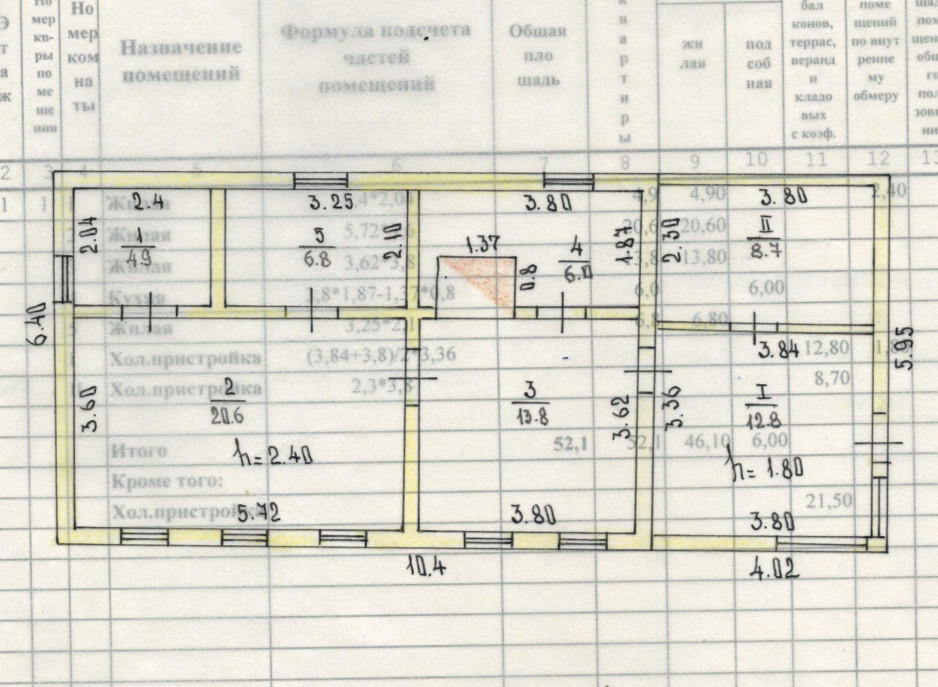 Э т а ж
Но мер кв- ры по ме ще ния
Но мер ком на ты
Назначение помещений
Формула подсчета частей помещений
Общая пло щадь
к в а р т и р ы
жи лая
под соб ная
бал конов, террас, веранд и кладо вых с коэф.
поме щений по внут ренне му обмеру
2 3 4 5 6 7 8 9 10 11 12 13
1 1 Жилая 2,4*2,04 4,9 4,90 2,40
Жилая 20,6 20,60
Жилая 3,62*3,8 13,80
Кухня 3,8*1,87-1,37*0,8 6,0 6,00
5 Жилая 3,25*2,1 6,8 6,80
I Хол.пристройка (3,84+3,8)/2*3,36 12,80
II Хол.пристройка 2,3*3,8 8,70
Итого 52,1 52,1 46,10 6,00
Кроме того:
Хол.пристройка 21,50
2.4 3.25 3.80 3.80
2.04 1 4.9
5 6.8 2.10
1.37 0.8 4 6.0 1.87
2.30 II 8.7
6.40
3.84
5.95
3.60 2 20.6
3 13.8 3.62
3.36 I 12.8
h=2.40
h=1.80
5.72 3.80 3.80
10.4 4.02